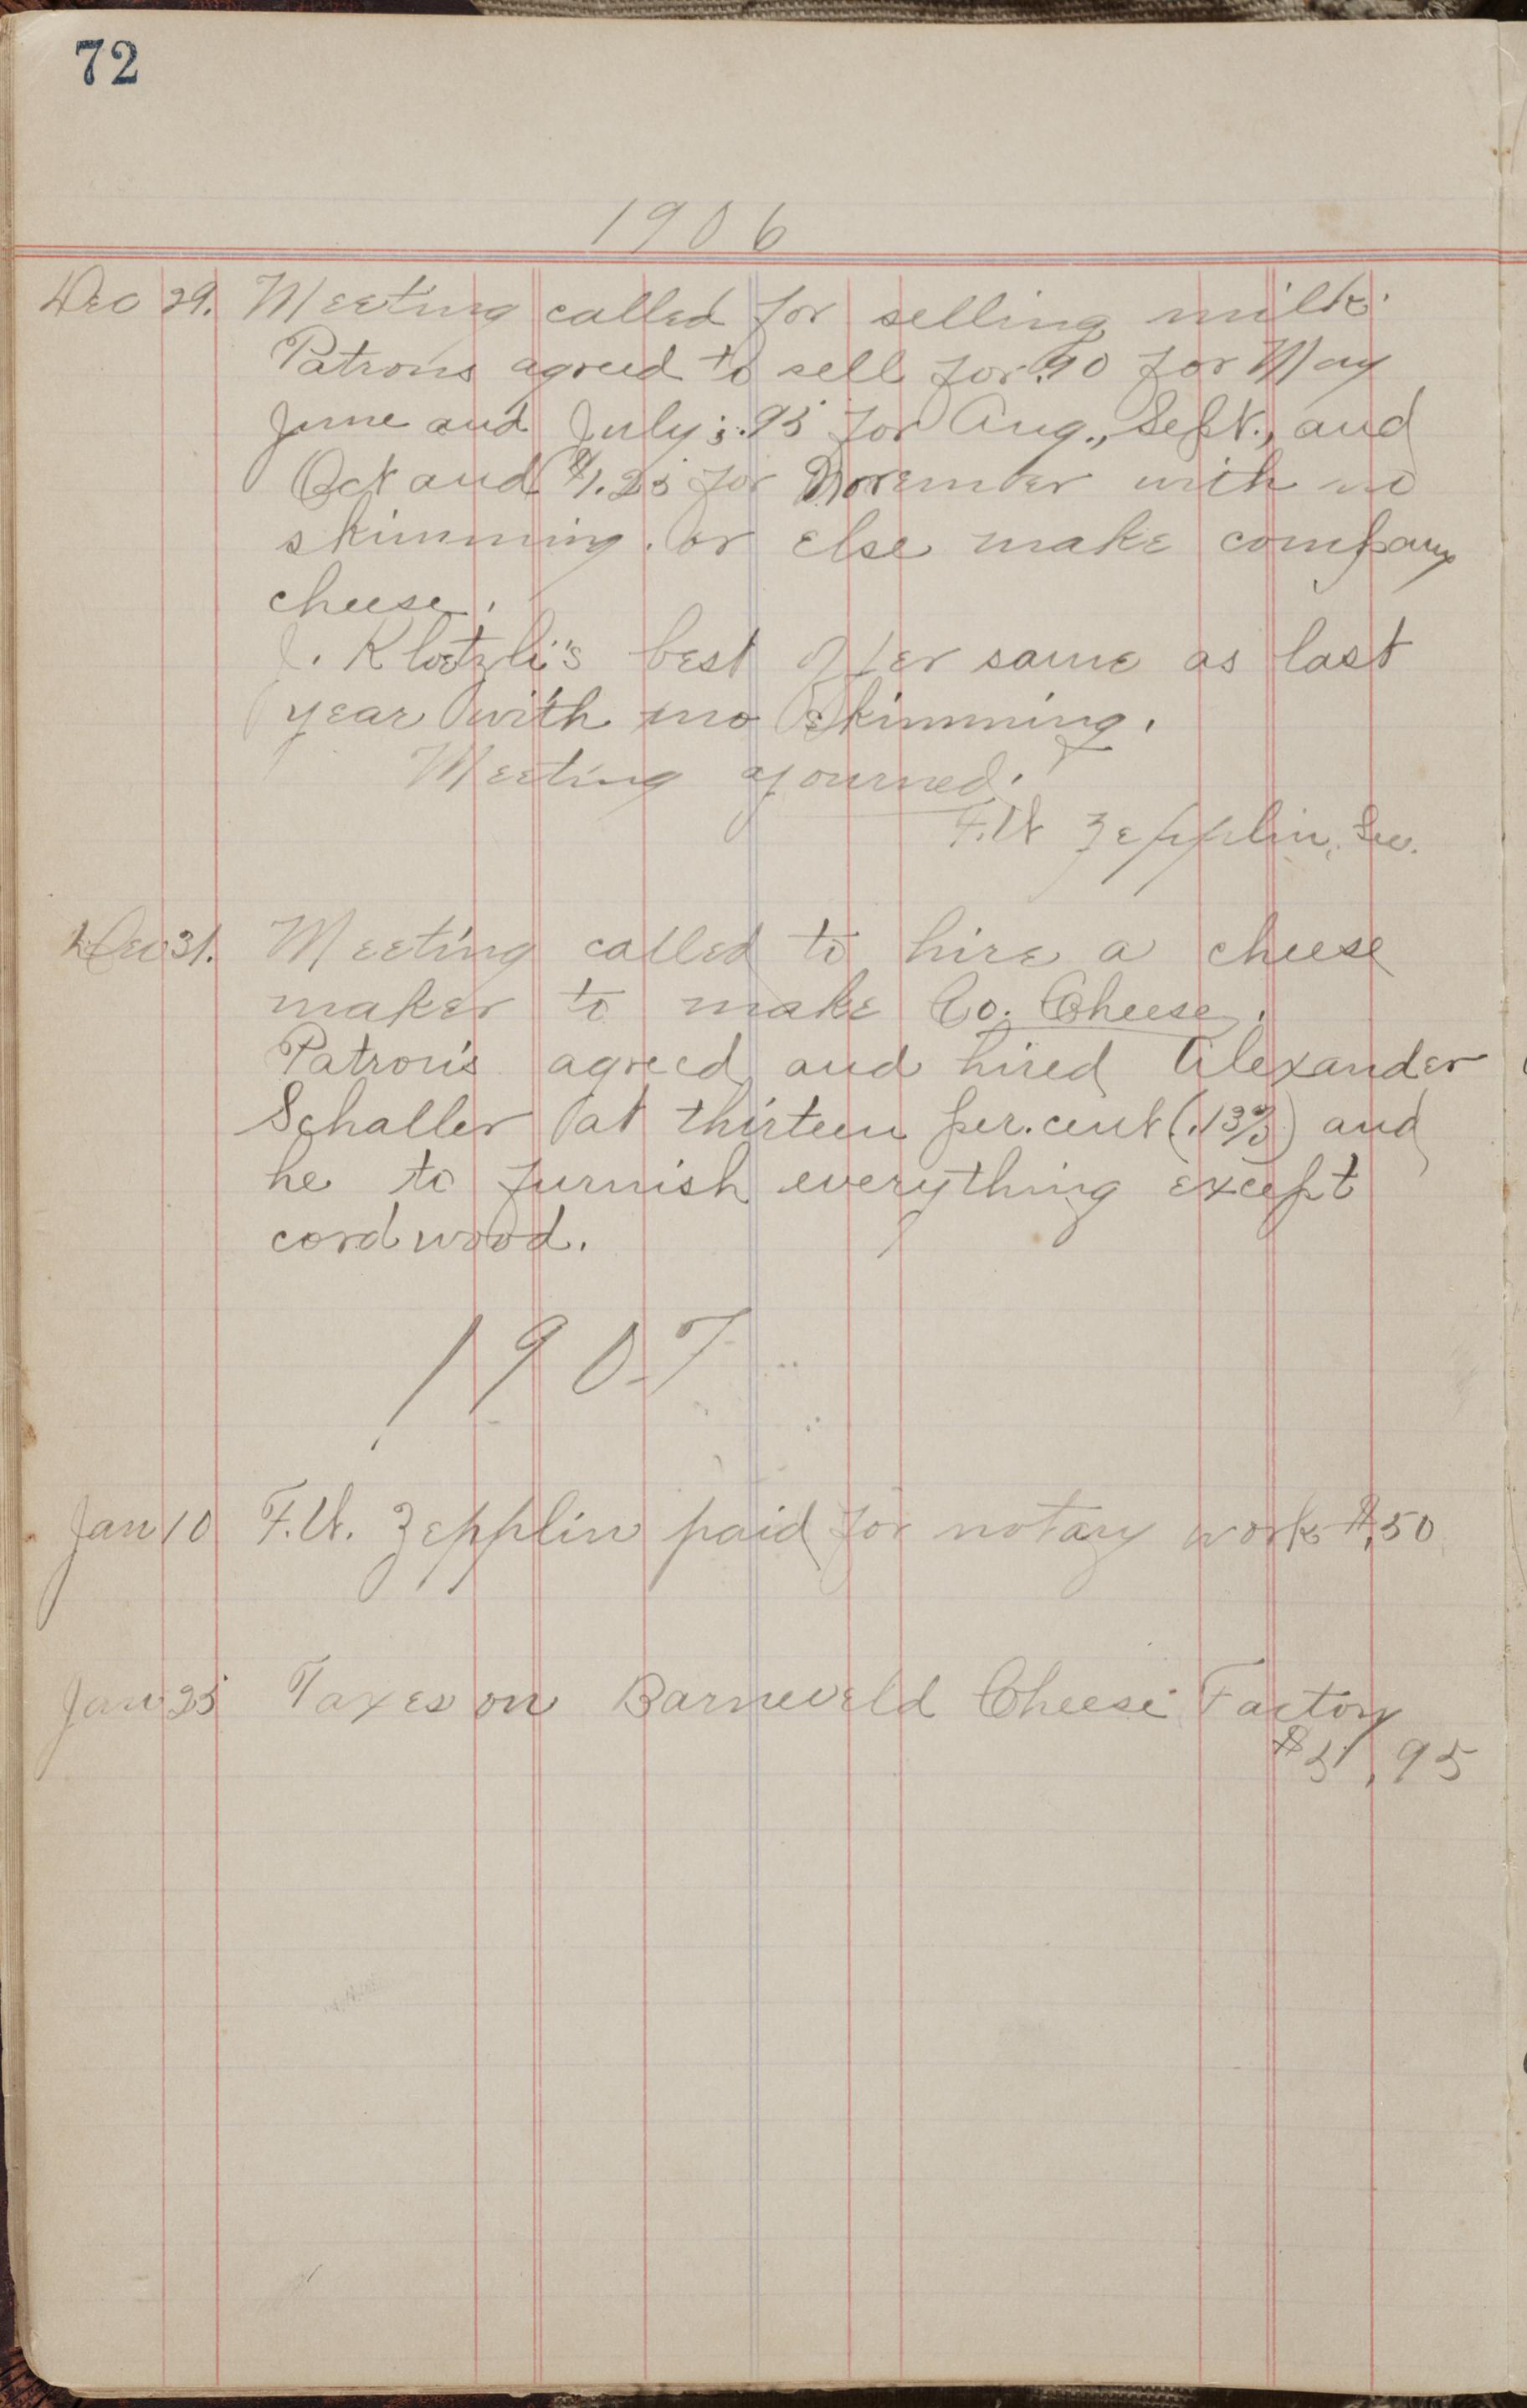 72
1906
Dec 29. Meeting called for selling milk.
Patrons agreed to sell for .90 for May
June and July; .95 for Aug., Sept., and
Oct and $1.25 for November with no
skimming. or else make company
cheese.
J. Kloetzli's best offer same as last
year with no skimming.
Meeting ajourned.
F.W. Zepplin, Sec.
Dec 31. Meeting called to hire a cheese
maker to make Co. Cheese.
Patron's agreed and hired Alexander
Schaller at thirteen per.cent (.13%) and
he to furnish everything except
cord wood.
1907
Jan 10 F.W. Zepplin paid for notary work $.50
Jan 25 Taxes on Barneveld Cheese Factory
$5.95